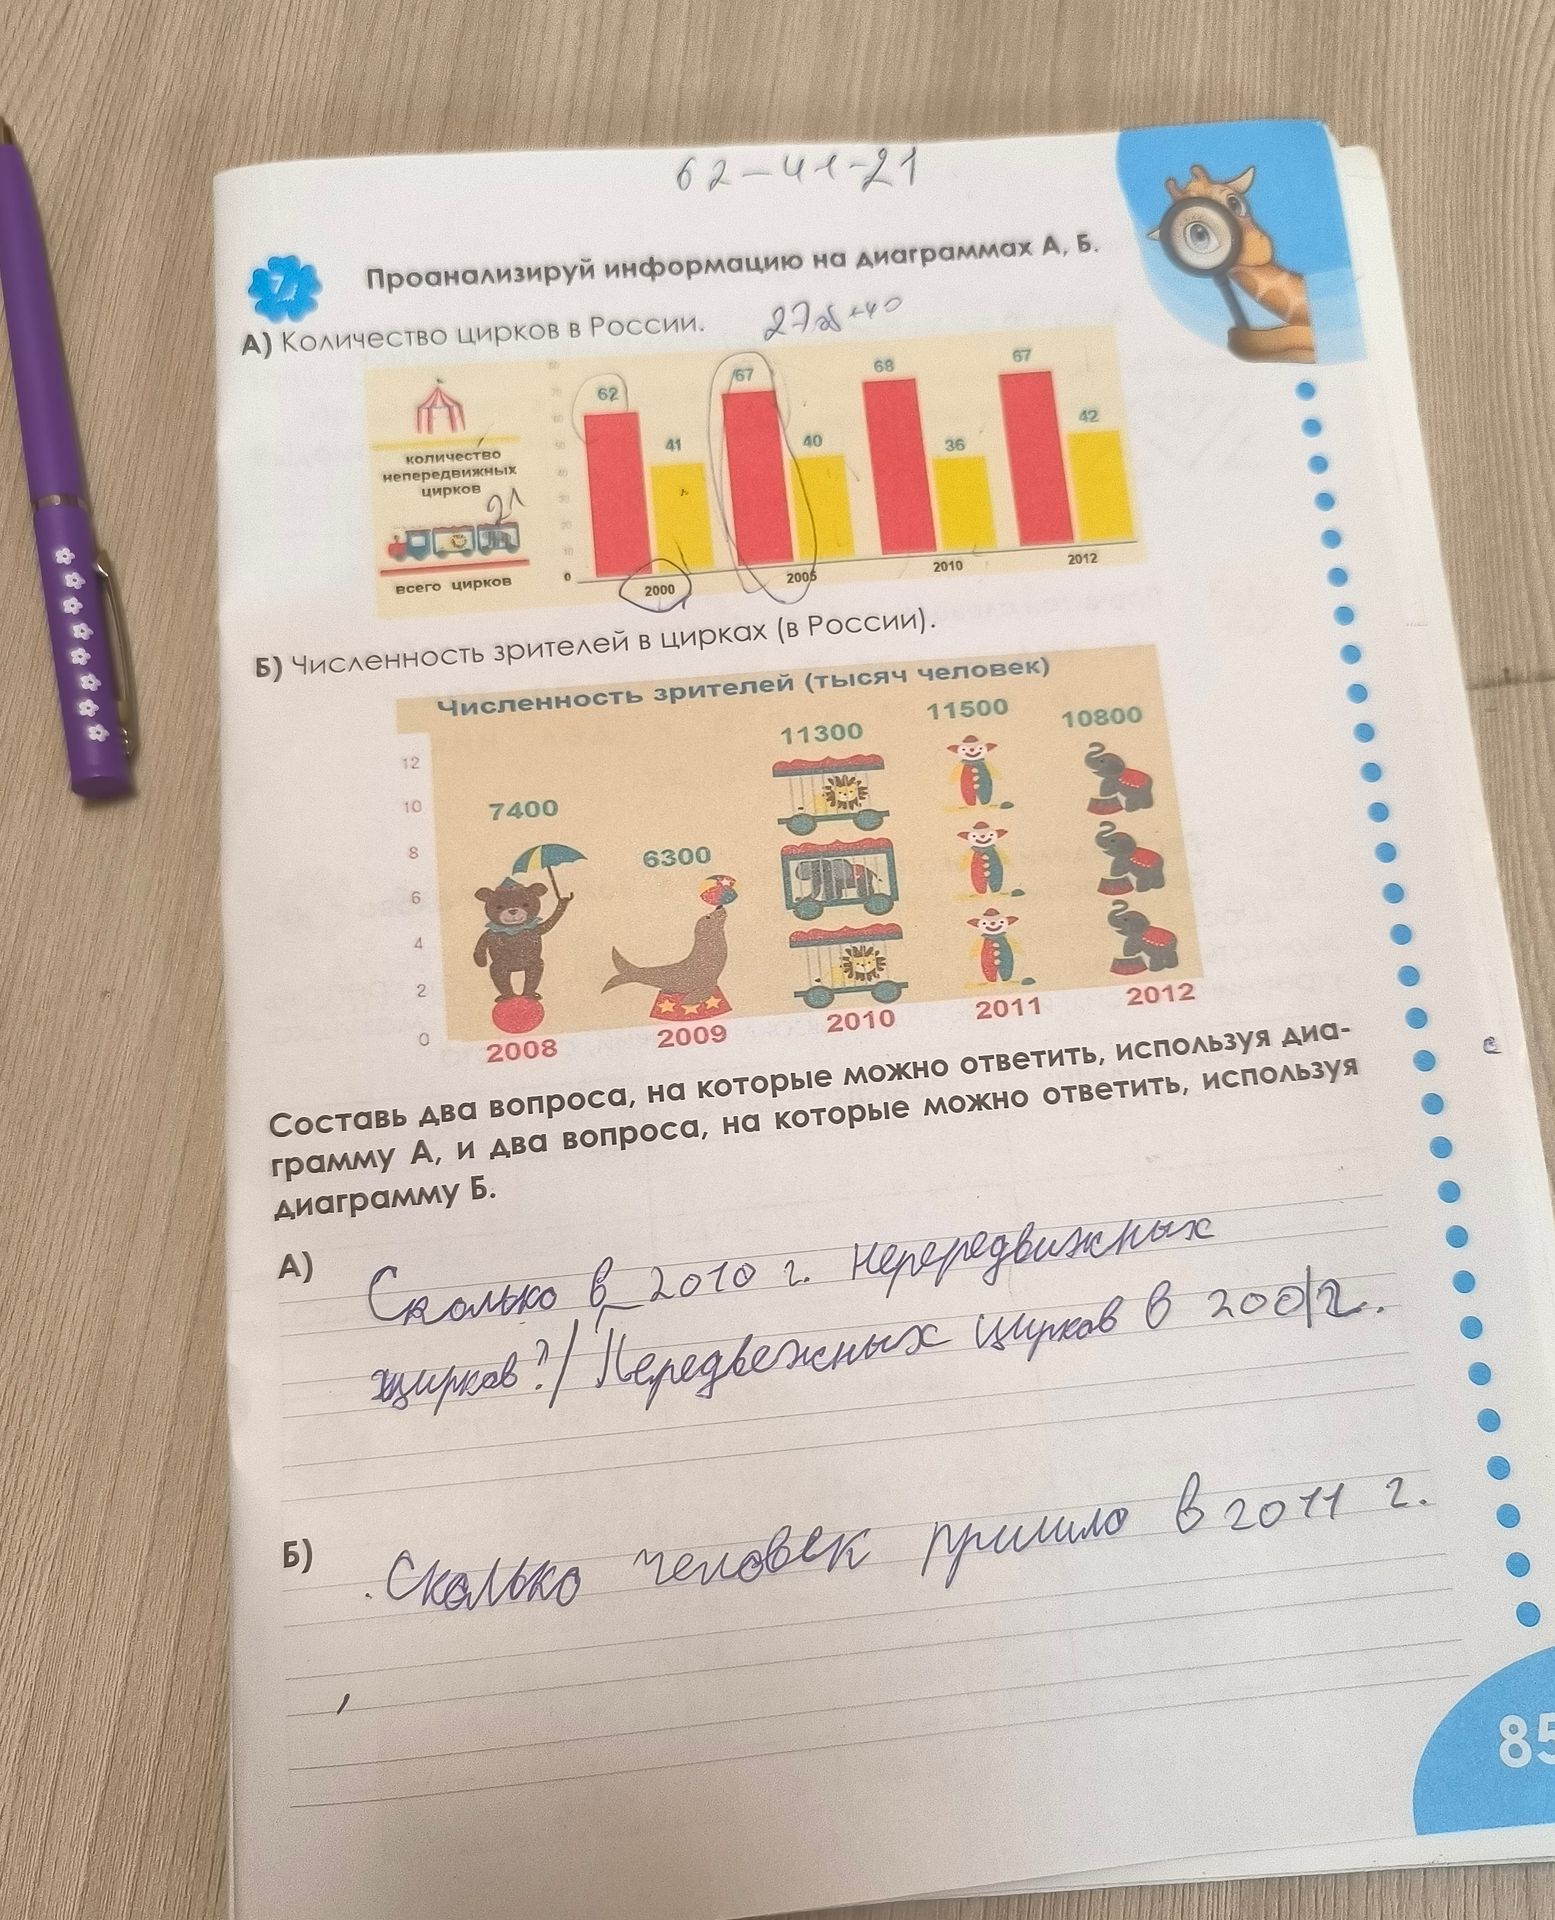 62-41-21
7
Проанализируй информацию на диаграммах А, Б.
А) Количество цирков в России.
62
41
67
40
68
36
67
42
количество
непередвижных
цирков
21
всего цирков
80
70
60
50
40
30
20
10
0
2000
2005
2010
2012
Б) Численность зрителей в цирках (в России).
Численность зрителей (тысяч человек)
7400
6300
11300
11500
10800
12
10
8
6
4
2
0
2008
2009
2010
2011
2012
Составь два вопроса, на которые можно ответить, используя диа-
грамму А, и два вопроса, на которые можно ответить, используя
диаграмму Б.
А)
Сколько в 2010 г. Нерередвижных
цирков?/ Передвежных цирков в
Б)
Сколько человек пришло в 2011 г.
85